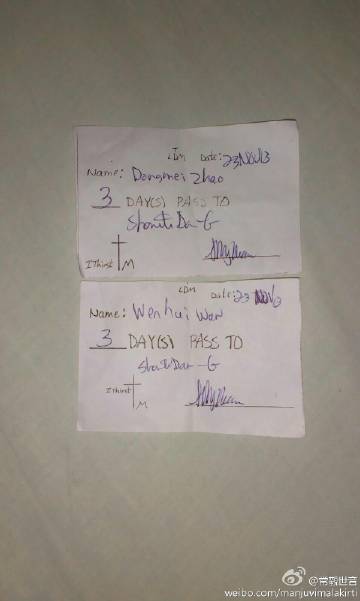 LDM Date: 23 NOV13
Name: Dongmei Zhao
3 DAY(S) PASS TO
Shanti Dan-G
I Thirst M
LDM
Date: 23 NOV13
Name: Wenhui Wan
3 DAY(S) PASS TO
Shanti Dan-G
I thirst M
常毅世音
weibo.com/manjuvimalakirti